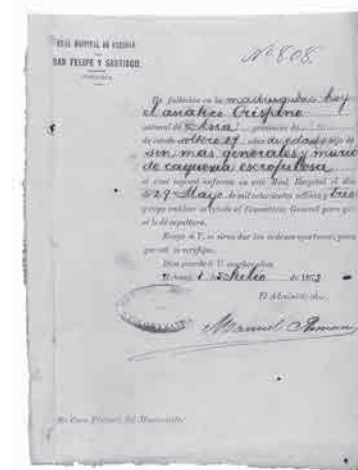 REAL HOSPITAL DE
SAN FELIPE Y SANTIAGO.
No 808.
Ha fallecido en la madrugada de hoy
el asiático Crispino
natural de Asia provincia de
de estado soltero 27 años de edad hijo de
sin mas generales y murió
de caquexia escrofulosa
el cual ingresó enfermo en este Real Hospital el día
29 Mayo de mil ochocientos setenta y tres
y cuyo cadáver se remite al Cementerio General para que
se le dé sepultura.
Ruego á V. se sirva dar las órdenes oportunas, para
que así se verifique.
Dios guarde á V. muchos años.
1 de Julio de 1873
El Administrador,
Manuel
Sr. Cura Párroco del Monserrate.